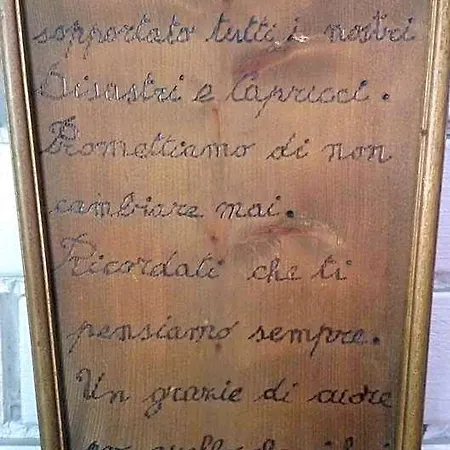 sopportato tutti i nostri
Disastri e Capricci.
Promettiamo di non
cambiare mai.
Ricordati che ti
pensiamo sempre.
Un grazie di cuore
per quello che